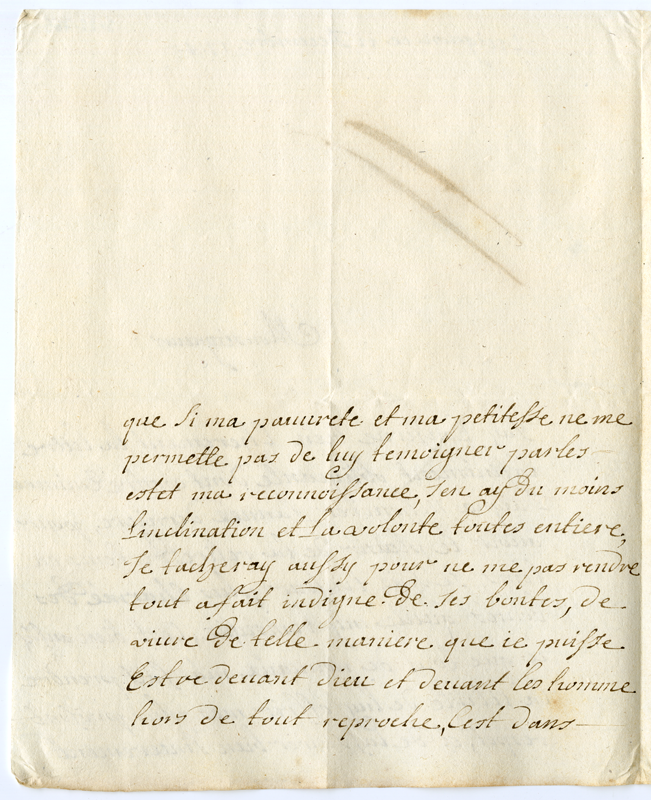 que Si ma pauurete et ma petitesse ne me
permette pas de luy temoigner par les
estet ma reconnoissance, J'en ay du moins
L'inclination et La volonte toutes entiere,
Je tacheray aussy pour ne me pas rendre
tout a fait indigne de ses bontes, de
viure de telle maniere que ie puisse
Estre deuant Dieu et deuant les homme
hors de tout reproche, C'est dans